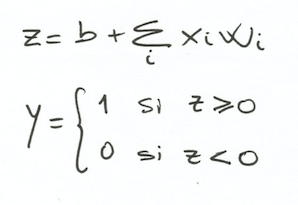 z = b + Σ xi wi
i
y = { 1 si z ≥ 0
0 si z < 0